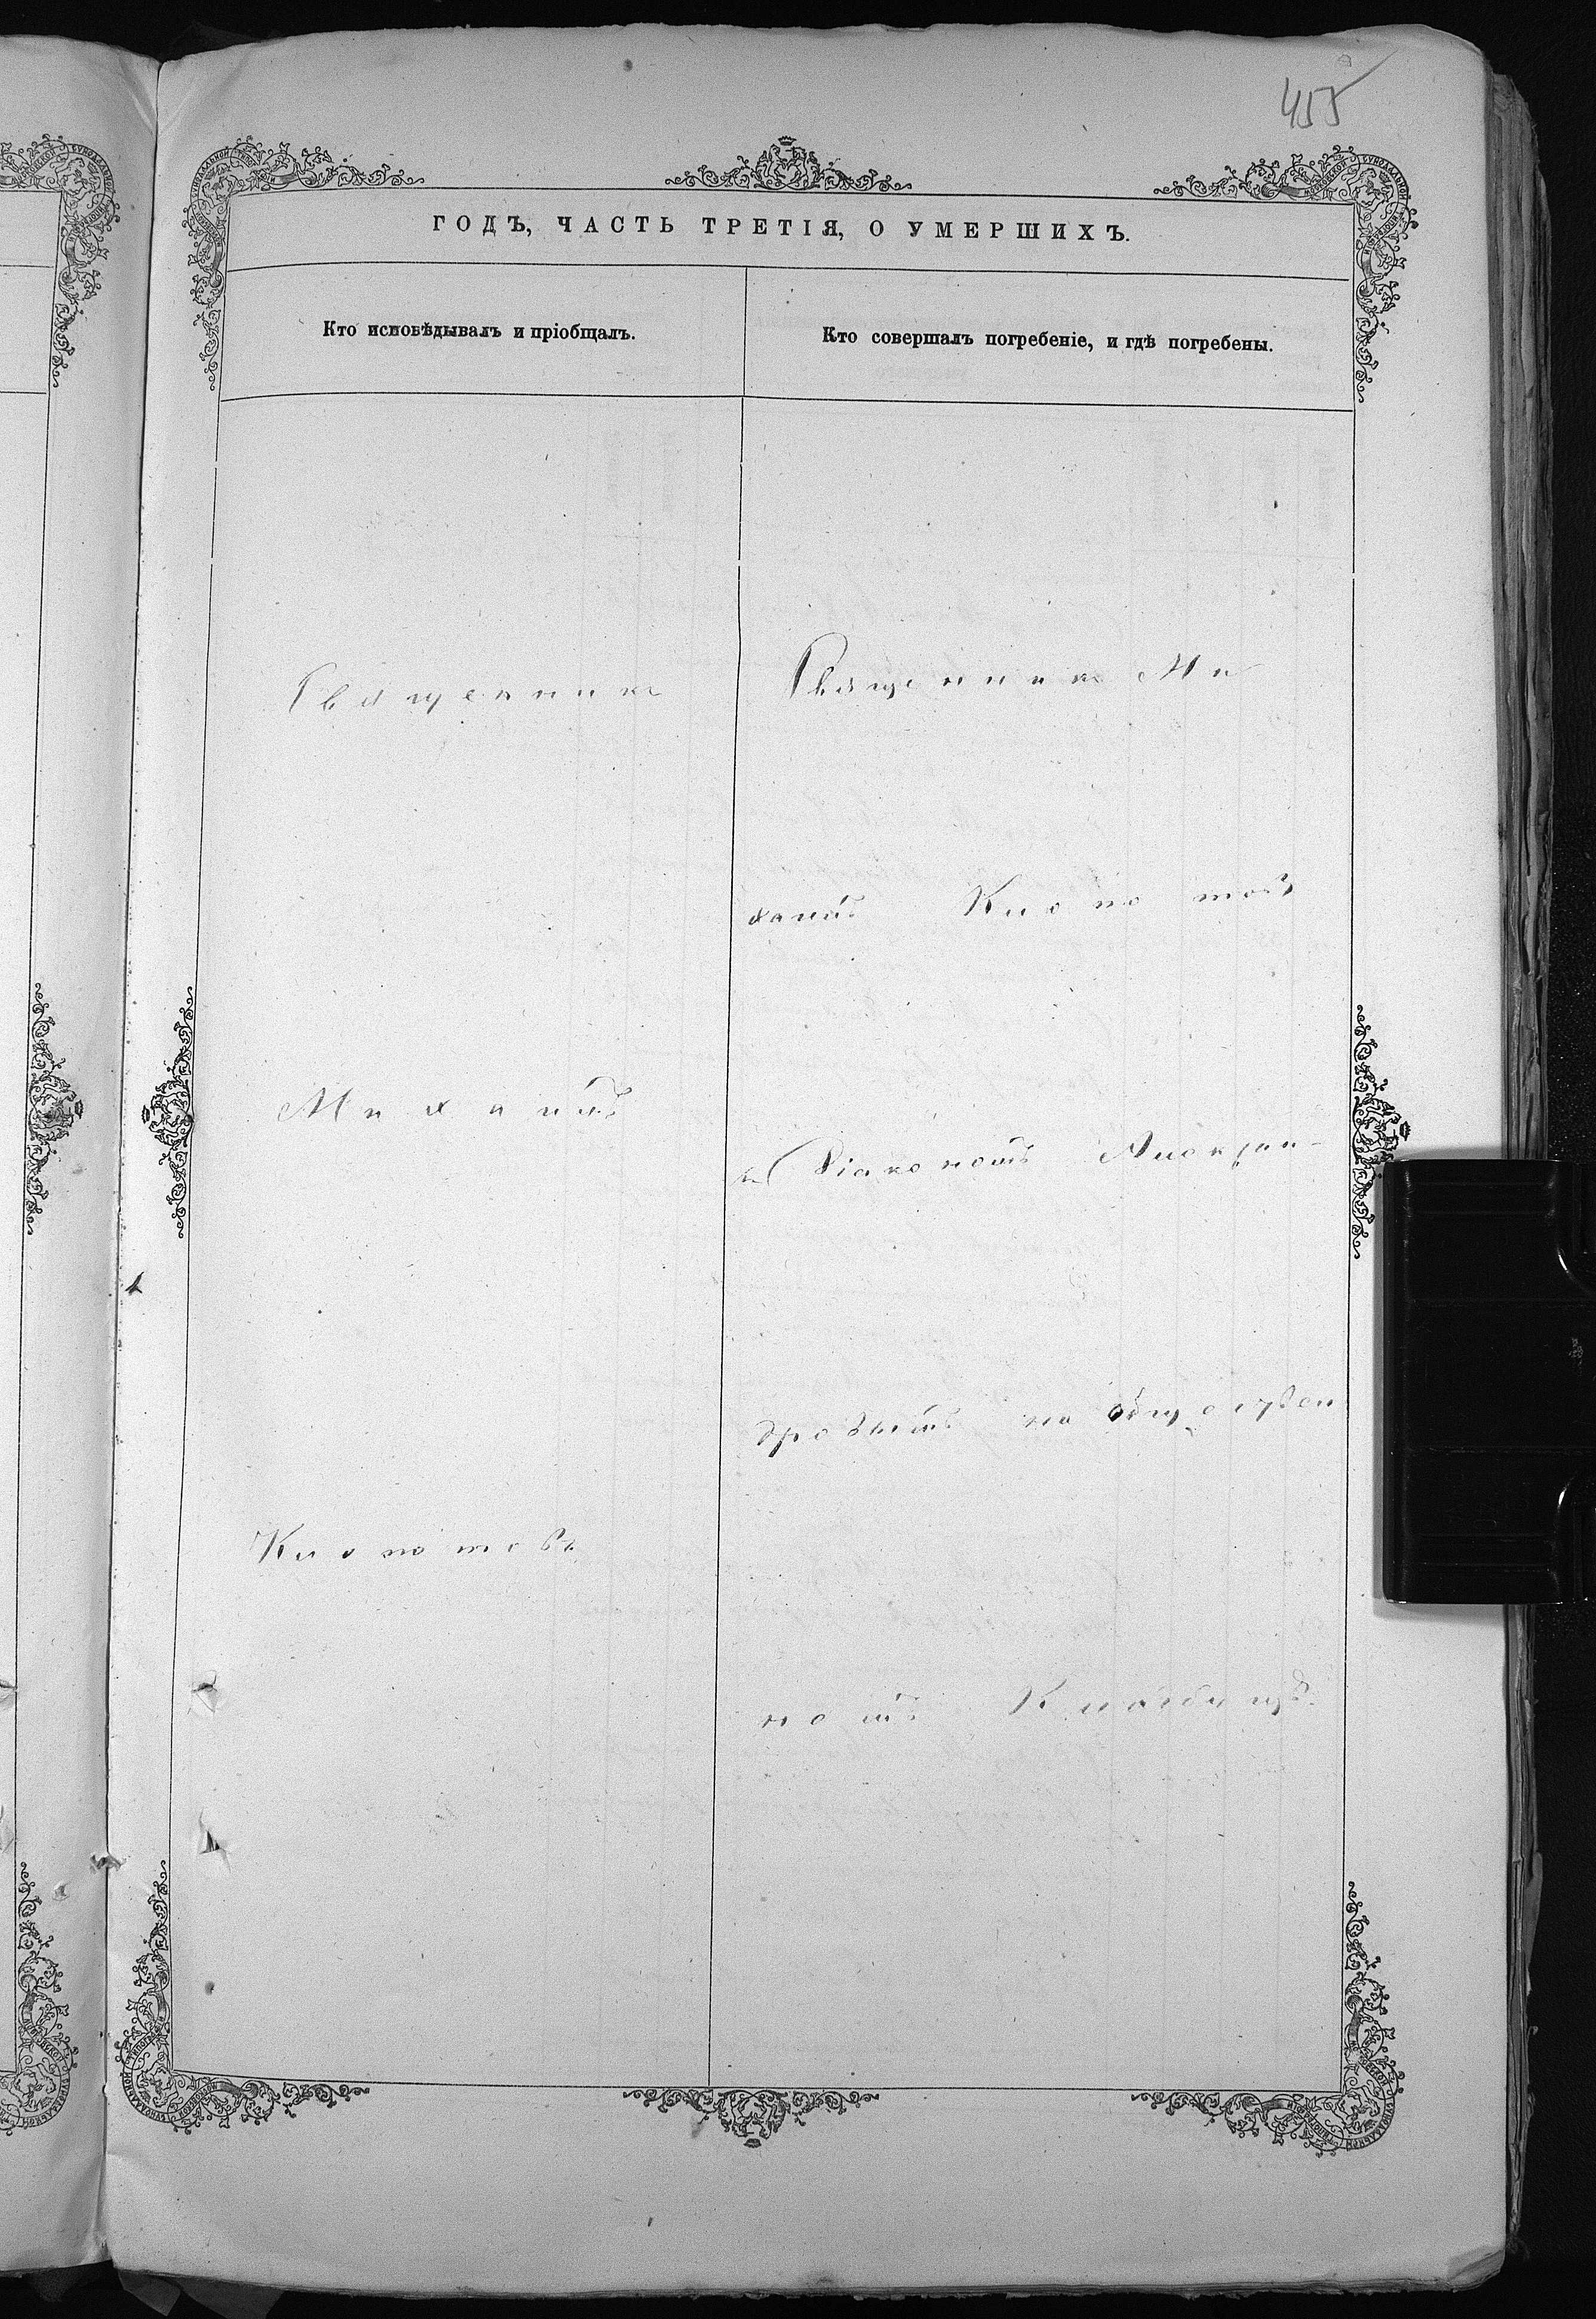 455
ГОДЪ, ЧАСТЬ ТРЕТІЯ, О УМЕРШИХЪ.
Кто исповѣдывалъ и пріобщалъ.
Кто совершалъ погребеніе, и гдѣ погребены.
Священникъ
Михаилъ
Клопотовъ
Священникъ Ми
хаилъ Клопотовъ
съ Діакономъ
на общеприход
номъ Кладбищѣ.